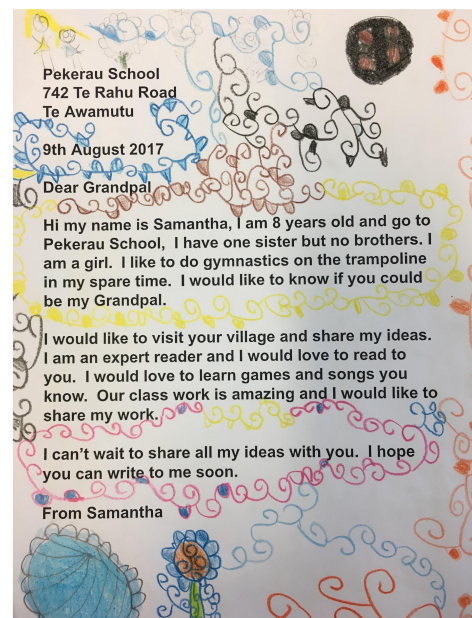 Pekerau School
742 Te Rahu Road
Te Awamutu
9th August 2017
Dear Grandpal
Hi my name is Samantha, I am 8 years old and go to
Pekerau School,  I have one sister but no brothers. I
am a girl.  I like to do gymnastics on the trampoline
in my spare time.  I would like to know if you could
be my Grandpal.
I would like to visit your village and share my ideas.
I am an expert reader and I would love to read to
you.  I would love to learn games and songs you
know.  Our class work is amazing and I would like to
share my work.
I can't wait to share all my ideas with you.  I hope
you can write to me soon.
From Samantha